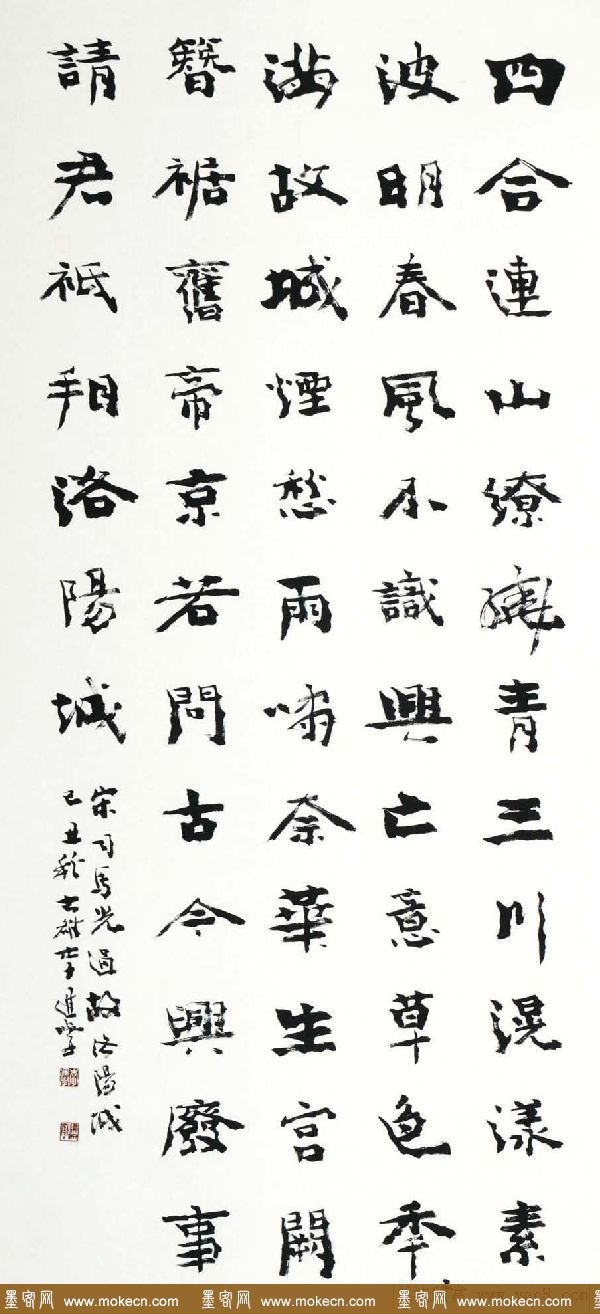 四合連山繚繞青三川滉漾素
波明春風不識興亡意草色年〻
滿故城煙愁雨嘯黍華生宮闕
簪裾舊帝京若問古今興廢事
請君祇看洛陽城
宋司馬光過故洛陽城
己丑秋
墨客网 www.mokecn.com 墨客网 www.mokecn.com 墨客网 www.mokecn.com